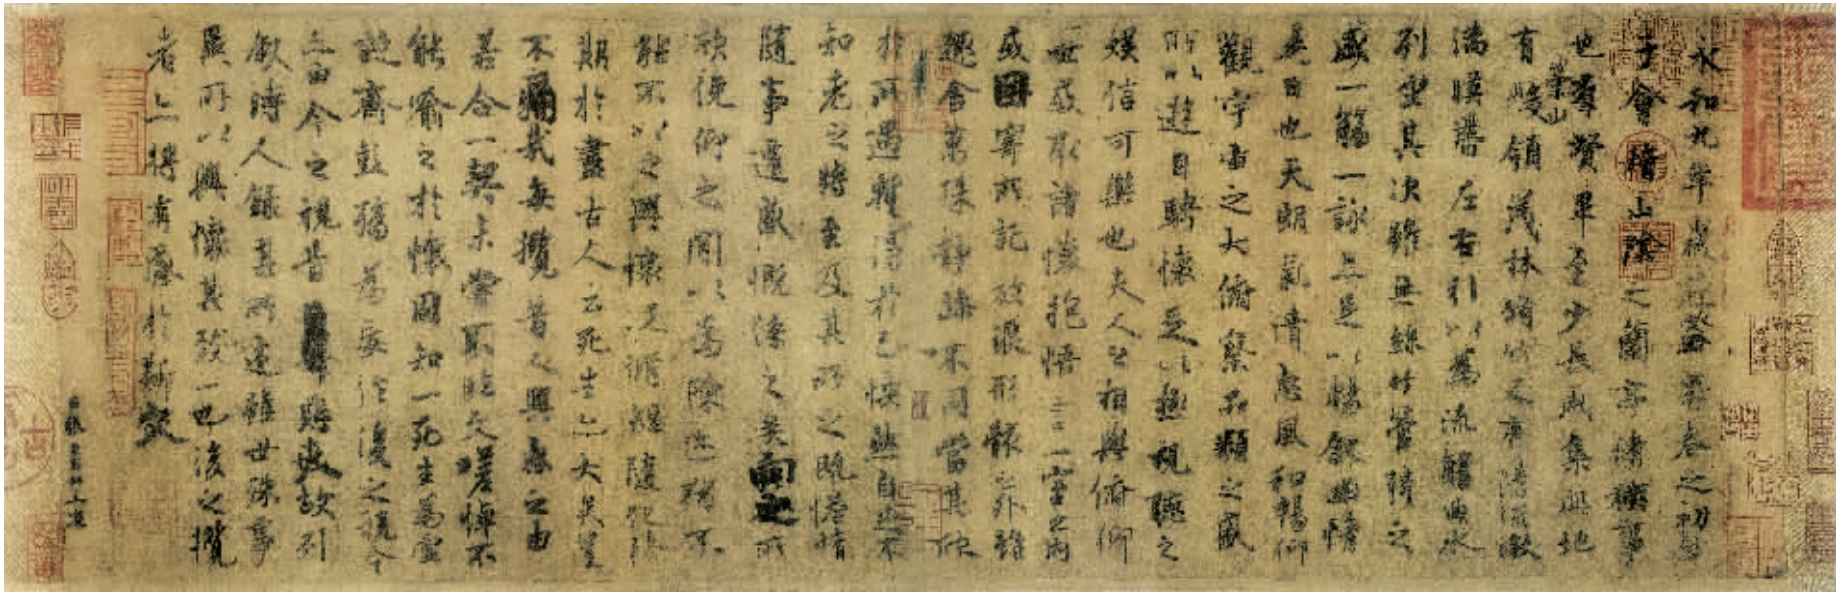 永和九年歲在癸丑暮春之初會
于會稽山陰之蘭亭脩禊事
也羣賢畢至少長咸集此地
有崇山峻領茂林脩竹又有清流激
湍暎帶左右引以為流觴曲水
列坐其次雖無絲竹管弦之
盛一觴一詠亦足以暢敘幽情
是日也天朗氣清惠風和暢仰
觀宇宙之大俯察品類之盛
所以遊目騁懷足以極視聽之
娛信可樂也夫人之相與俯仰
一世或取諸懷抱悟言一室之內
或因寄所託放浪形骸之外雖
趣舍萬殊靜躁不同當其欣
於所遇暫得於己怏然自足不
知老之將至及其所之既惓情
隨事遷感慨係之矣向之所
欣俛仰之閒以為陳迹猶不
能不以之興懷況脩短隨化終
期於盡古人云死生亦大矣豈
不痛哉每攬昔人興感之由
若合一契未嘗不臨文嗟悼不
能喻之於懷固知一死生為虛
誕齊彭殤為妄作後之視今
亦由今之視昔悲夫故列
敘時人錄其所述雖世殊事
異所以興懷其致一也後之攬
者亦將有感於斯文
臣張金界奴上進